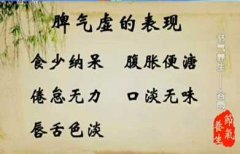 脾气虚的表现
食少纳呆 腹胀便溏
倦怠无力 口淡无味
唇舌色淡
節氣
養生